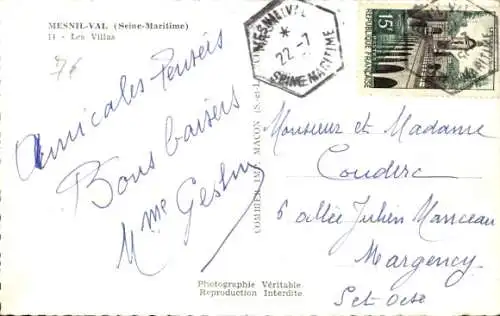 MESNIL-VAL (Seine-Maritime)
14 - Les Villas
76
Amicales Pensées
Bons baisers
Mme
COMBIER IMP. MACON
Photographie Véritable
Reproduction Interdite
MESNIL-VAL
22-7
SEINE MARITIME
15F
REPUBLIQUE FRANÇAISE
Monsieur et Madame
Couderc
6 allée Julien Manceau
Margency
Set Oise